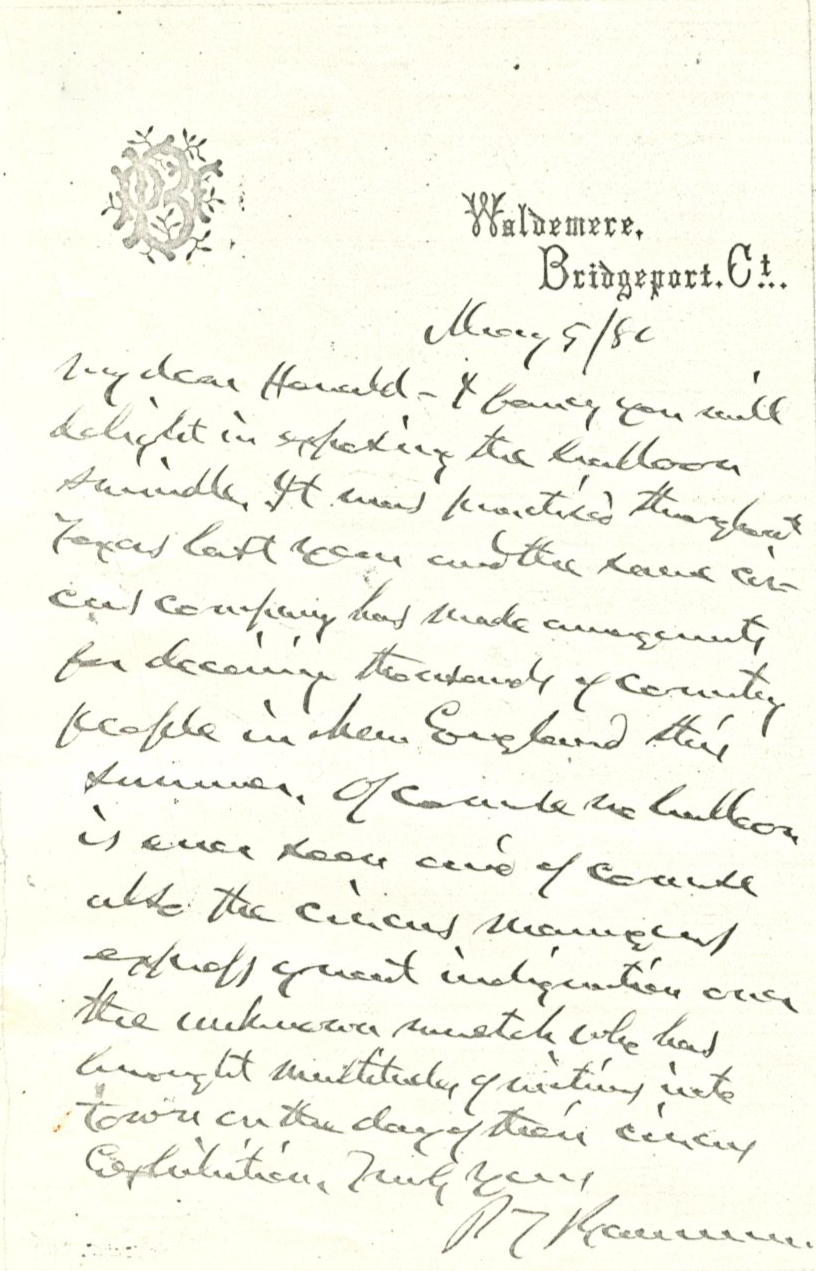 PTB
Waldemere,
Bridgeport. Ct..
May 5/80
My dear Harold - I fancy you will
delight in exposing the balloon
swindle. It was practised throughout
Texas last year and the same cir-
cus company has made arrangements
for deceiving thousands of country
people in New England this
summer. Of course no balloon
is ever seen and of course
also the circus managers
express great indignation over
the unknown wretch who has
brought multitudes of victims into
town on the day of their circus
Exhibition. Truly yours
P T Barnum.